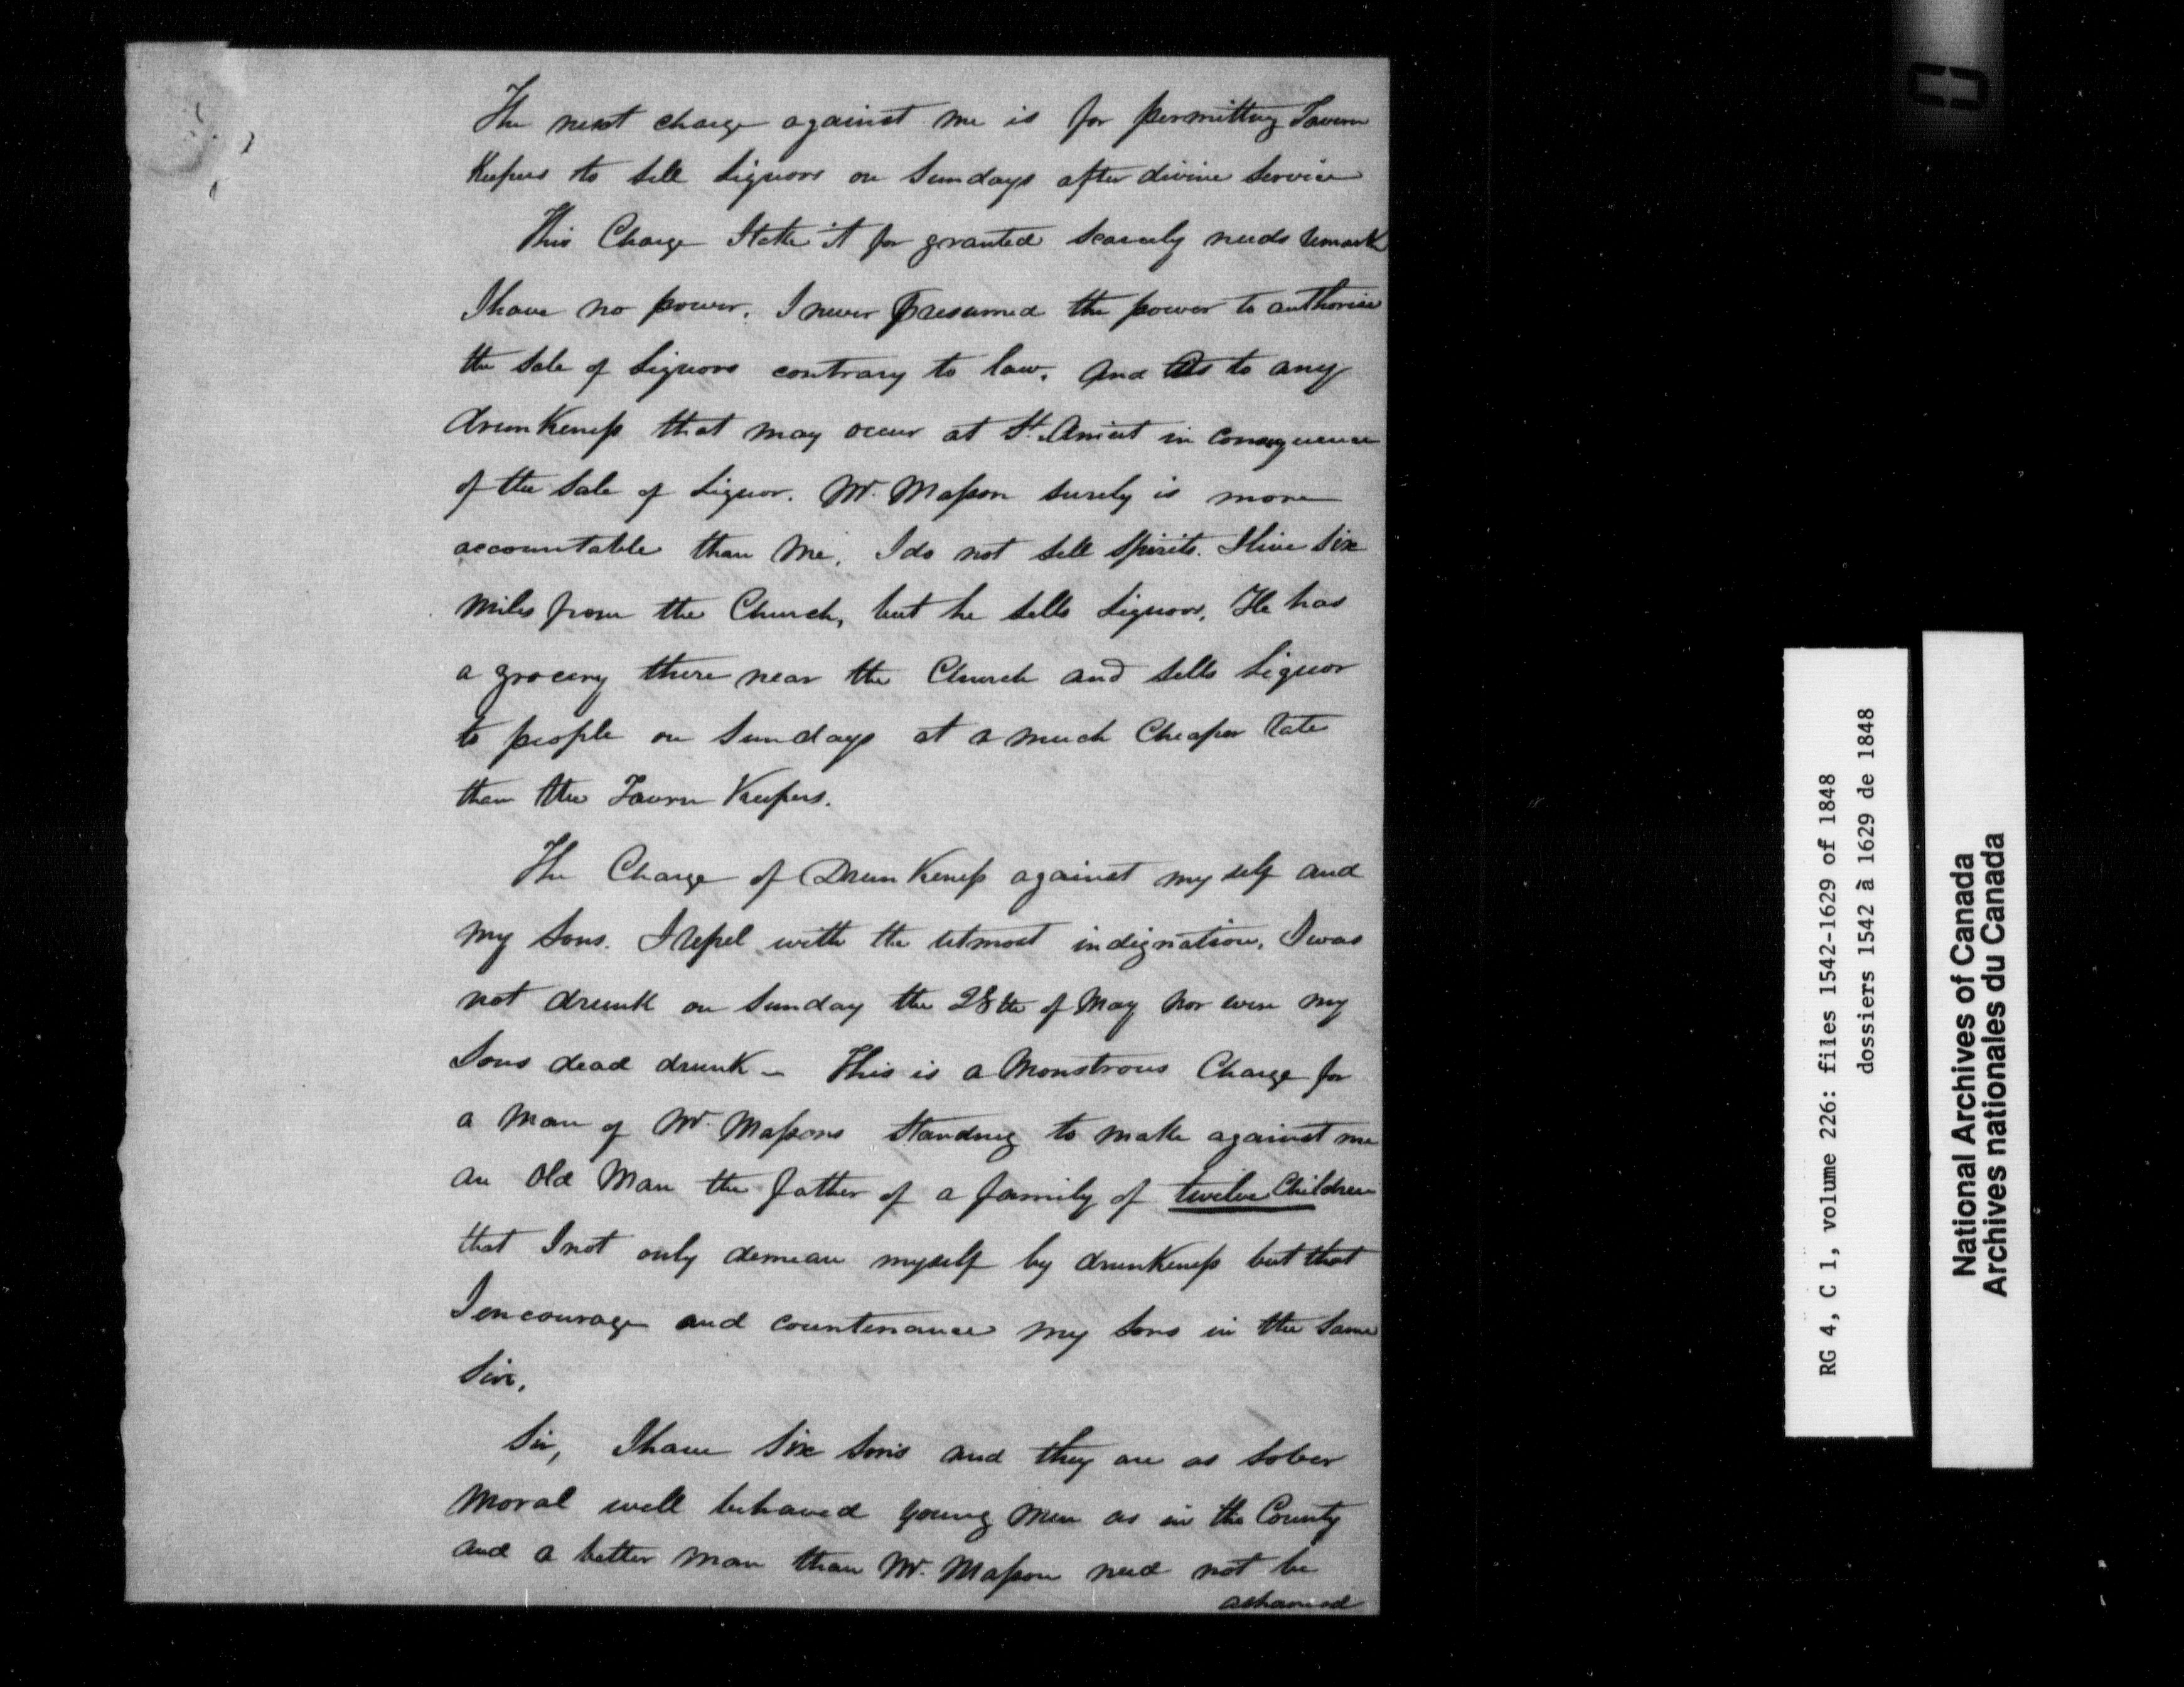 The next charge against me is for permitting Tavern
Keepers to sell Liquors on Sundays after divine Service
This Charge I take it for granted scarcely needs remark
I have no power. I never Presumed the power to authorise
the Sale of Liquors contrary to law. And As to any
drunkeness that may occur at St. Anicet in consequence
of the Sale of Liquor. Mr. Masson surely is more
accountable than me. I do not sell spirits. I live Six
miles from the Church, but he sells Liquors. He has
a grocery there near the Church and sells Liquor
to people on Sundays at a much Cheaper rate
than the Tavern Keepers.
The Charge of Drunkeness against my self and
my Sons. I repel with the utmost indignation, I was
not drunk on Sunday the 28th of May nor were my
Sons dead drunk – This is a Monstrous Charge for
a man of Mr. Massons Standing to make against me
an Old Man the father of a family of twelve Children
that I not only demean myself by drunkeness but that
I encourage and countenance my Sons in the Same
Sin.
Sir, I have Six Sons and they are as Sober
Moral well behaved young men as in the County
and a better man than Mr. Masson need not be
ashamed
RG 4, C 1, volume 226: files 1542-1629 of 1848
dossiers 1542 à 1629 de 1848
National Archives of Canada
Archives nationales du Canada